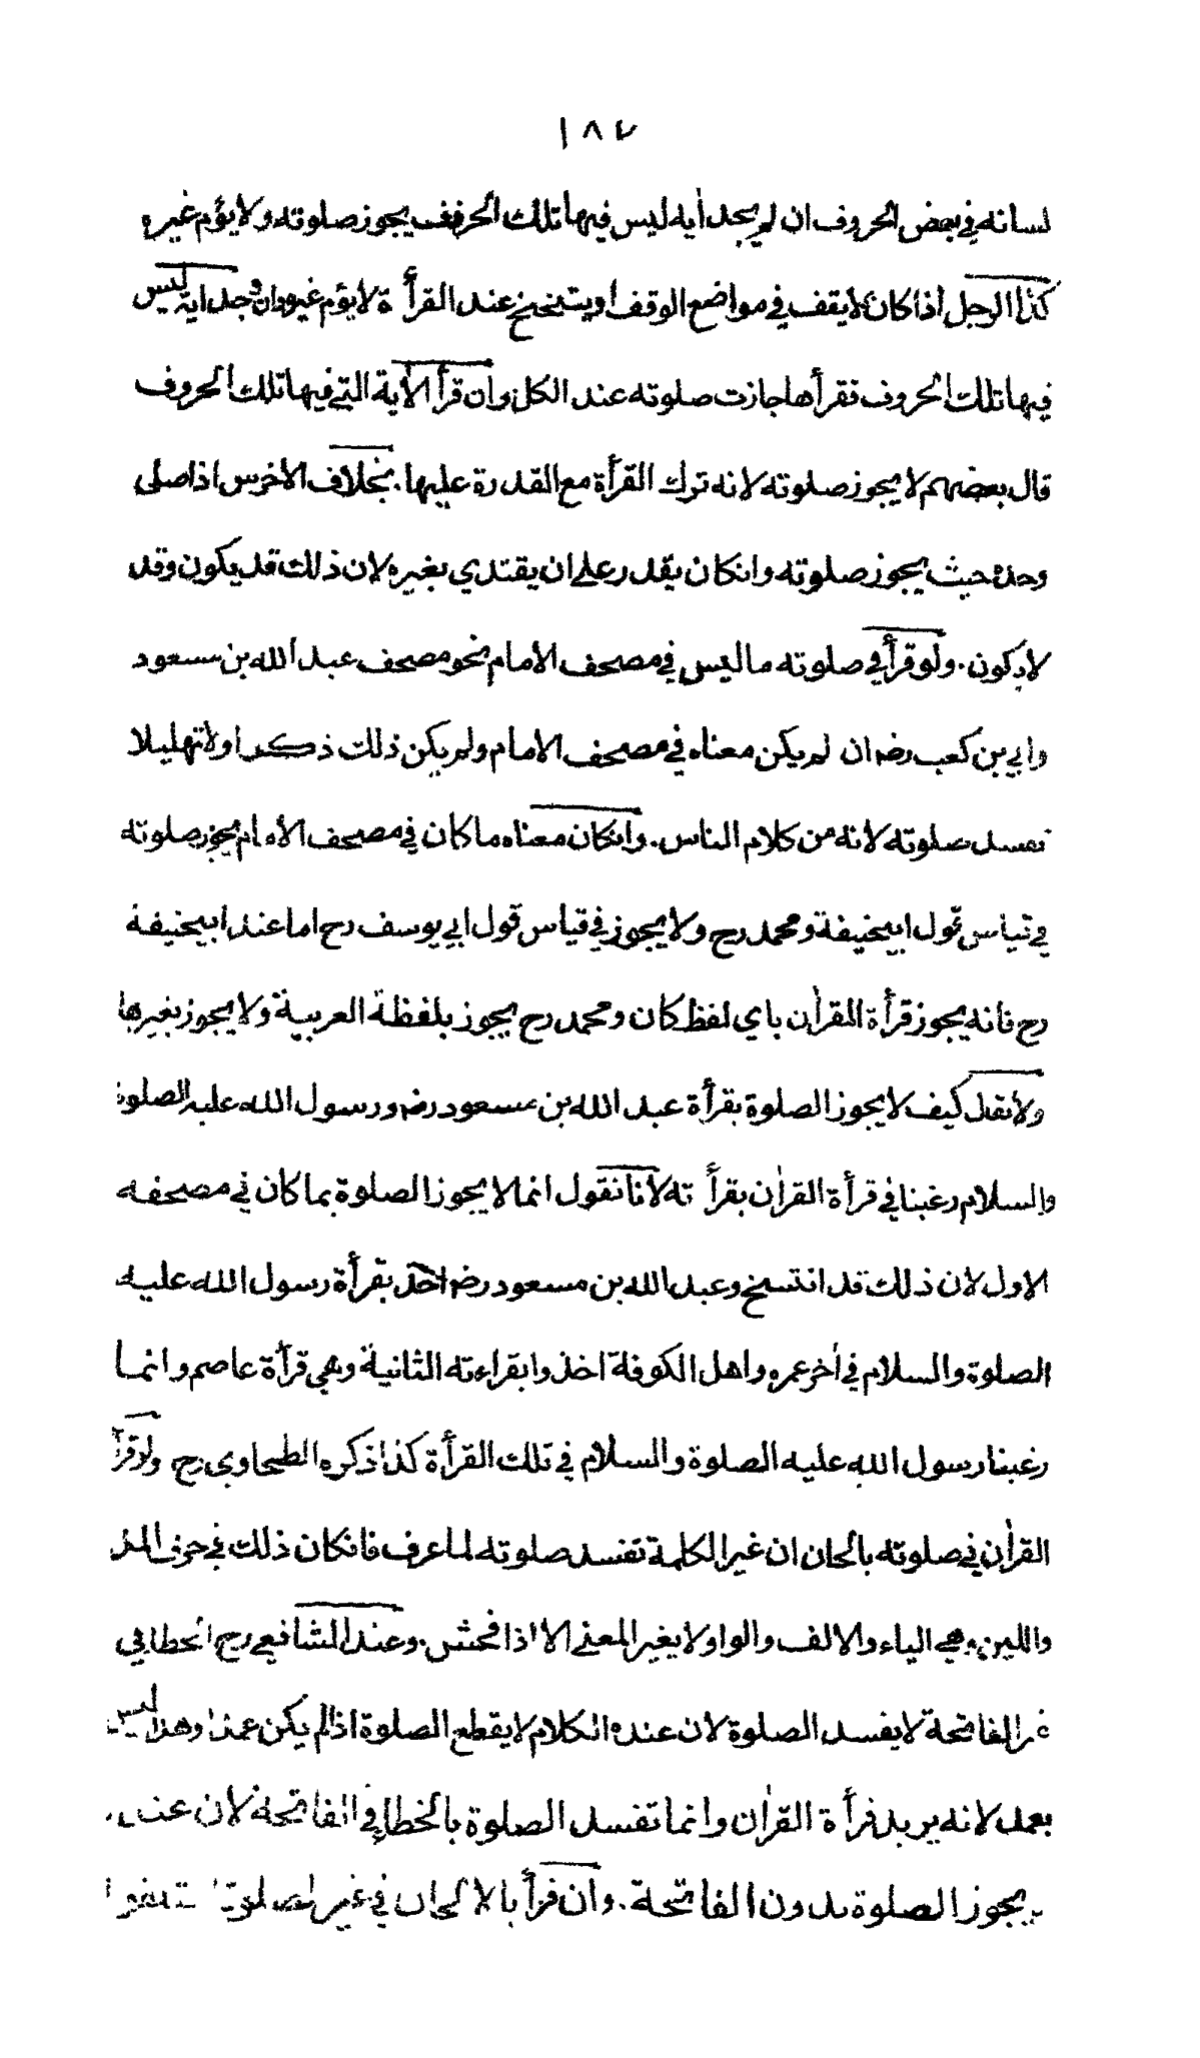 ١٨٧
لسانه في بعض الحروف ان لم يجد أية ليس فيها تلك الحرفف يجوز صلوته ولا يؤم غيره
كذا الرجل اذا كان لا يقف في مواضع الوقف او يتنحنح عند القرأة لا يؤم غيره وان وجد اية ليس
فيها تلك الحروف فقرأها جازت صلوته عند الكل وان قرأ الأية التي فيها تلك الحروف
قال بعضهم لا يجوز صلوته لانه ترك القرأة مع القدرة عليها. بخلاف الاخرس اذا صلى
وحده حيث يجوز صلوته وانكان يقدر على ان يقتدي بغيره لان ذلك قد يكون وقد
لا يكون. ولو قرأ في صلوته ما ليس في مصحف الامام نحو مصحف عبد الله بن مسعود
وابي بن كعب رضه ان لم يكن معناه في مصحف الامام ولم يكن ذلك ذكرا ولا تهليلا
تفسد صلوته لانه من كلام الناس. وانكان معناه ما كان في مصحف الأمام يجوز صلوته
في قياس قول ابيحنيفة ومحمد رح ولا يجوز في قياس قول ابي يوسف رح اما عند ابيحنيفة
رح فانه يجوز قرأة القرأن باي لفظ كان ومحمد رح يجوز بلفظة العربية ولا يجوز بغيرها
ولا يقال كيف لا يجوز الصلوة بقرأة عبد الله بن مسعود رضه ورسول الله عليه الصلوة
والسلام رغبنا في قرأة القرأن بقرأته لانا نقول انما لا يجوز الصلوة بما كان في مصحفه
الاول لان ذلك قد انتسخ وعبد الله بن مسعود رضه اخذ بقرأة رسول الله عليه
الصلوة والسلام في أخر عمره واهل الكوفة اخذوا بقراءته الثانية وهي قرأة عاصم وانما
رغبنا رسول الله عليه الصلوة والسلام في تلك القرأة كذا ذكره الطحاوي رح ولو قرأ
القرأن في صلوته بالحان ان غير الكلمة تفسد صلوته لما عرف فانكان ذلك في حرف المد
واللين وهي الياء والالف والواو لا يغير المعنى الا اذا فحش. وعند الشافعي رح الخطا في
غير الفاتحة لا يفسد الصلوة لان عنده الكلام لا يقطع الصلوة اذا لم يكن عمدا وهذا ليس
بعمد لانه يريد قرأة القرأن وانما تفسد الصلوة بالخطا في الفاتحة لان عنده
يجوز الصلوة بدون الفاتحة. وان قرأ بالالحان في غير الصلوة